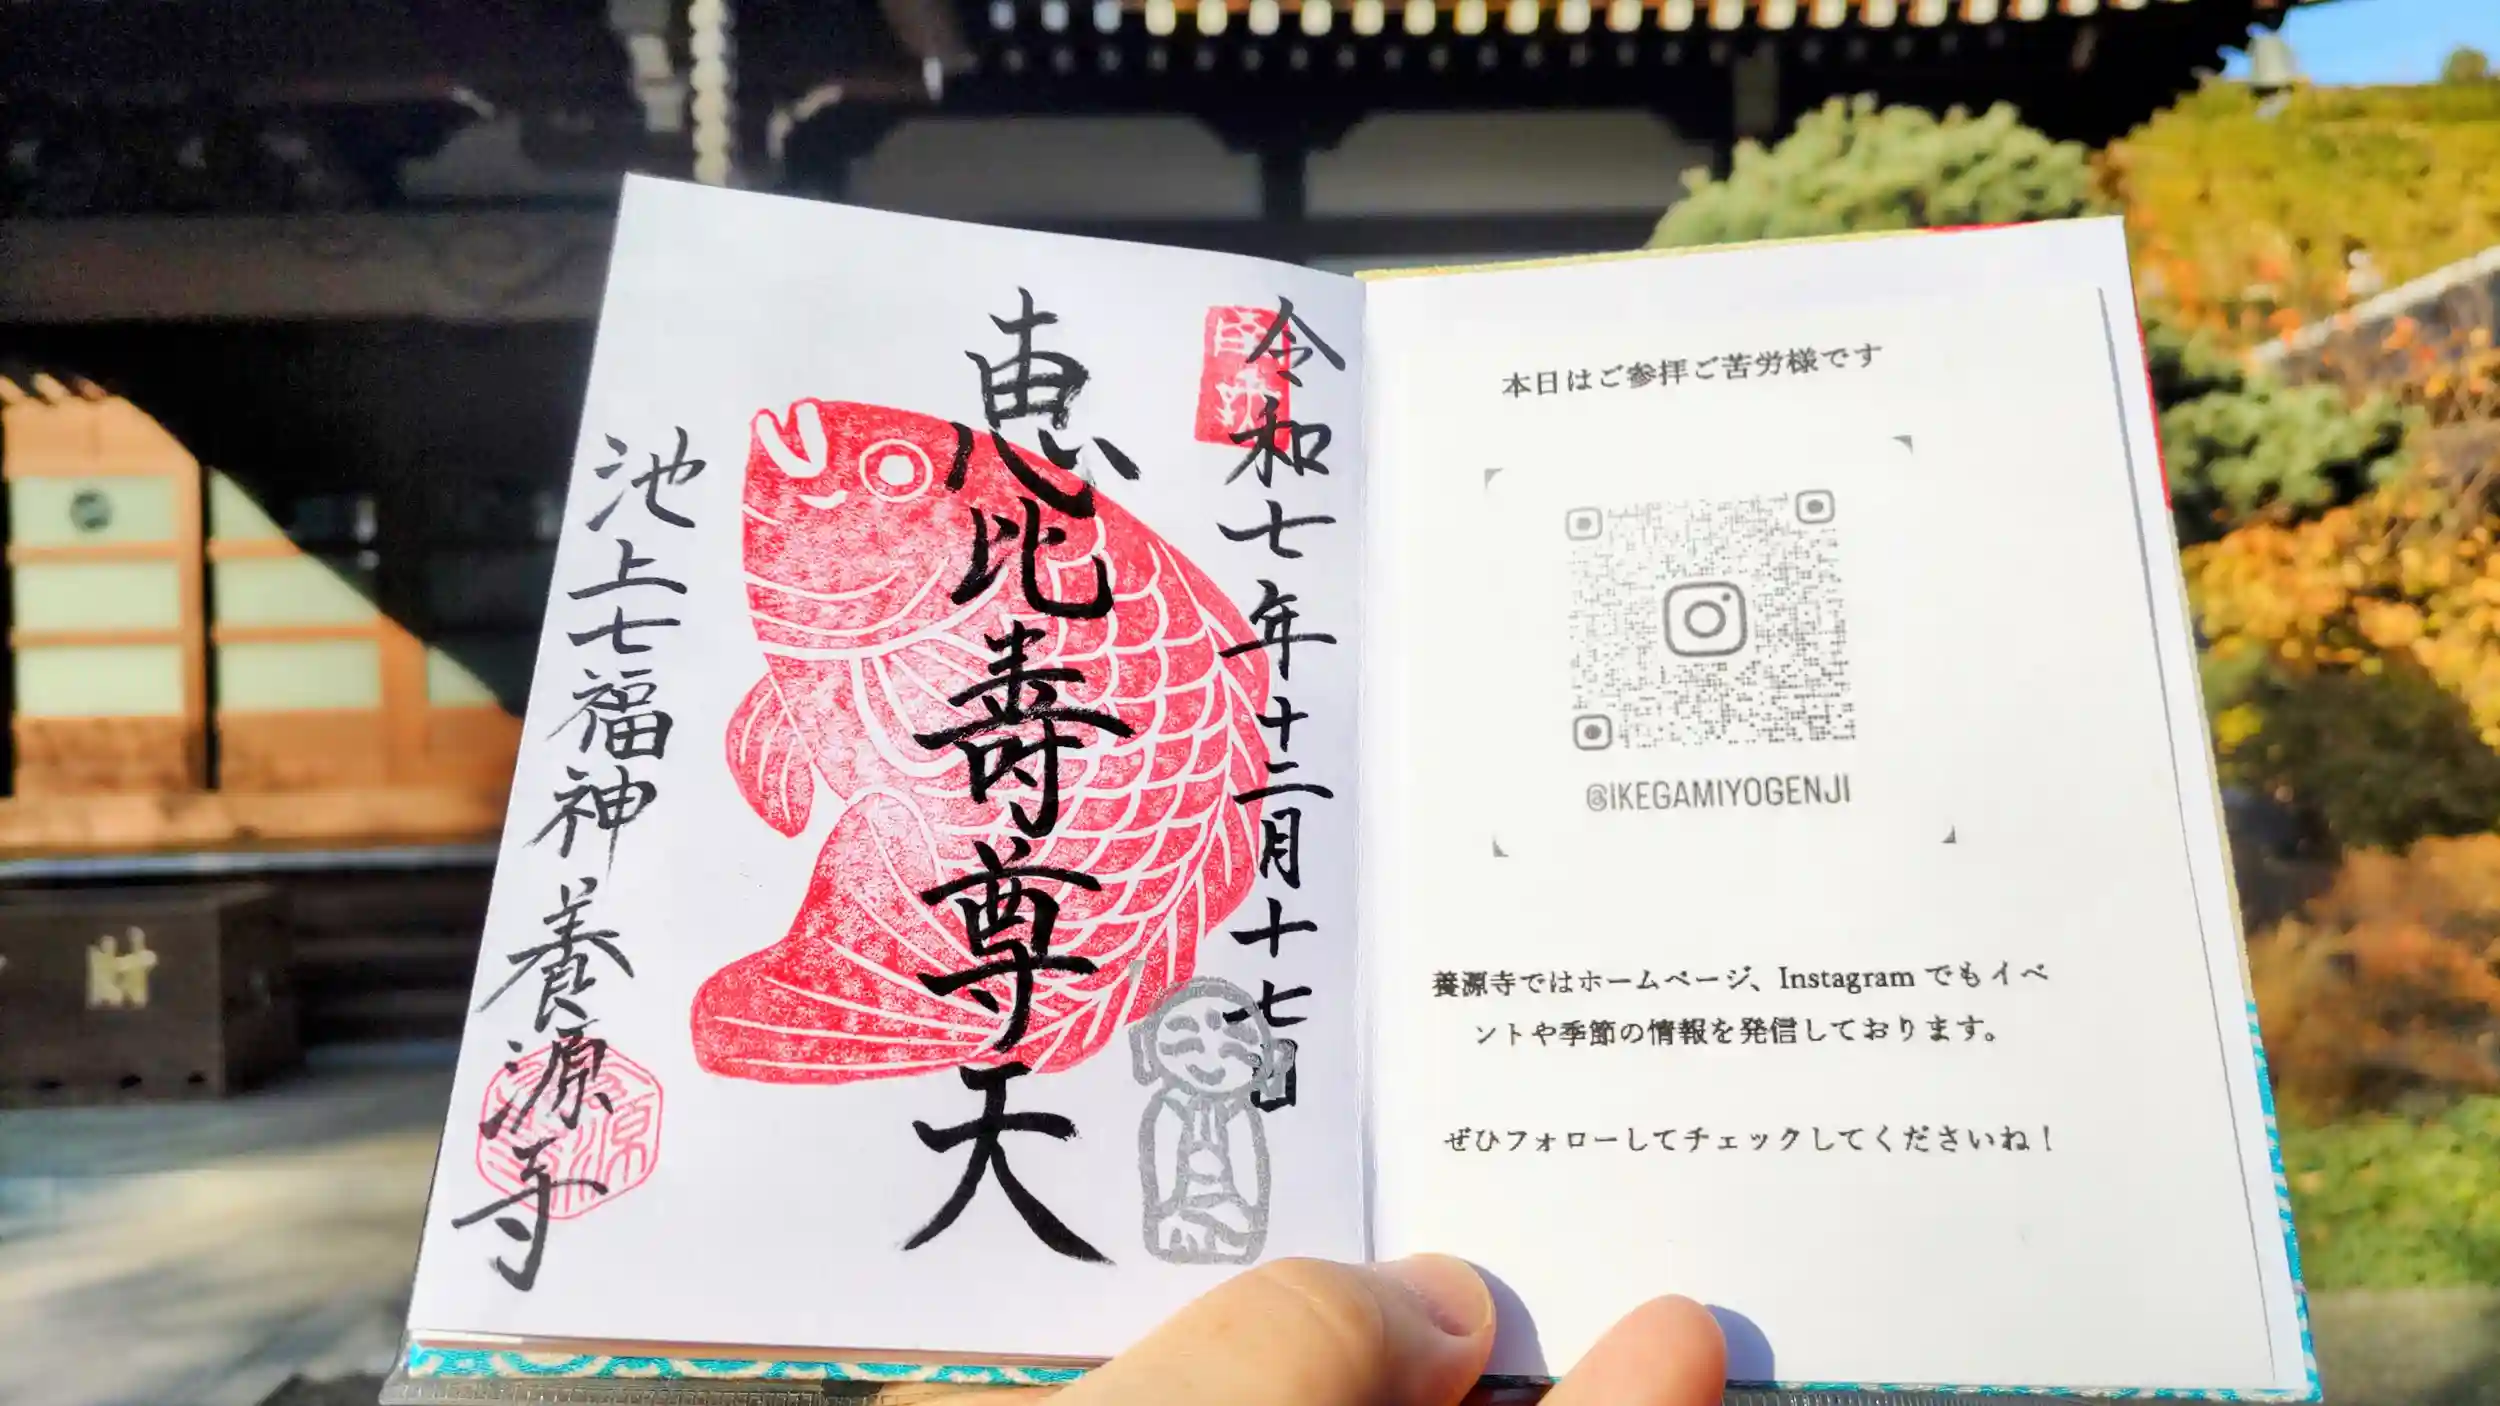 令和七年十二月十七日
恵比寿尊天
池上七福神 養源寺
本日はご参拝ご苦労様です
@IKEGAMIYOGENJI
養源寺ではホームページ、Instagramでもイベ
ントや季節の情報を発信しております。
ぜひフォローしてチェックしてくださいね！
財